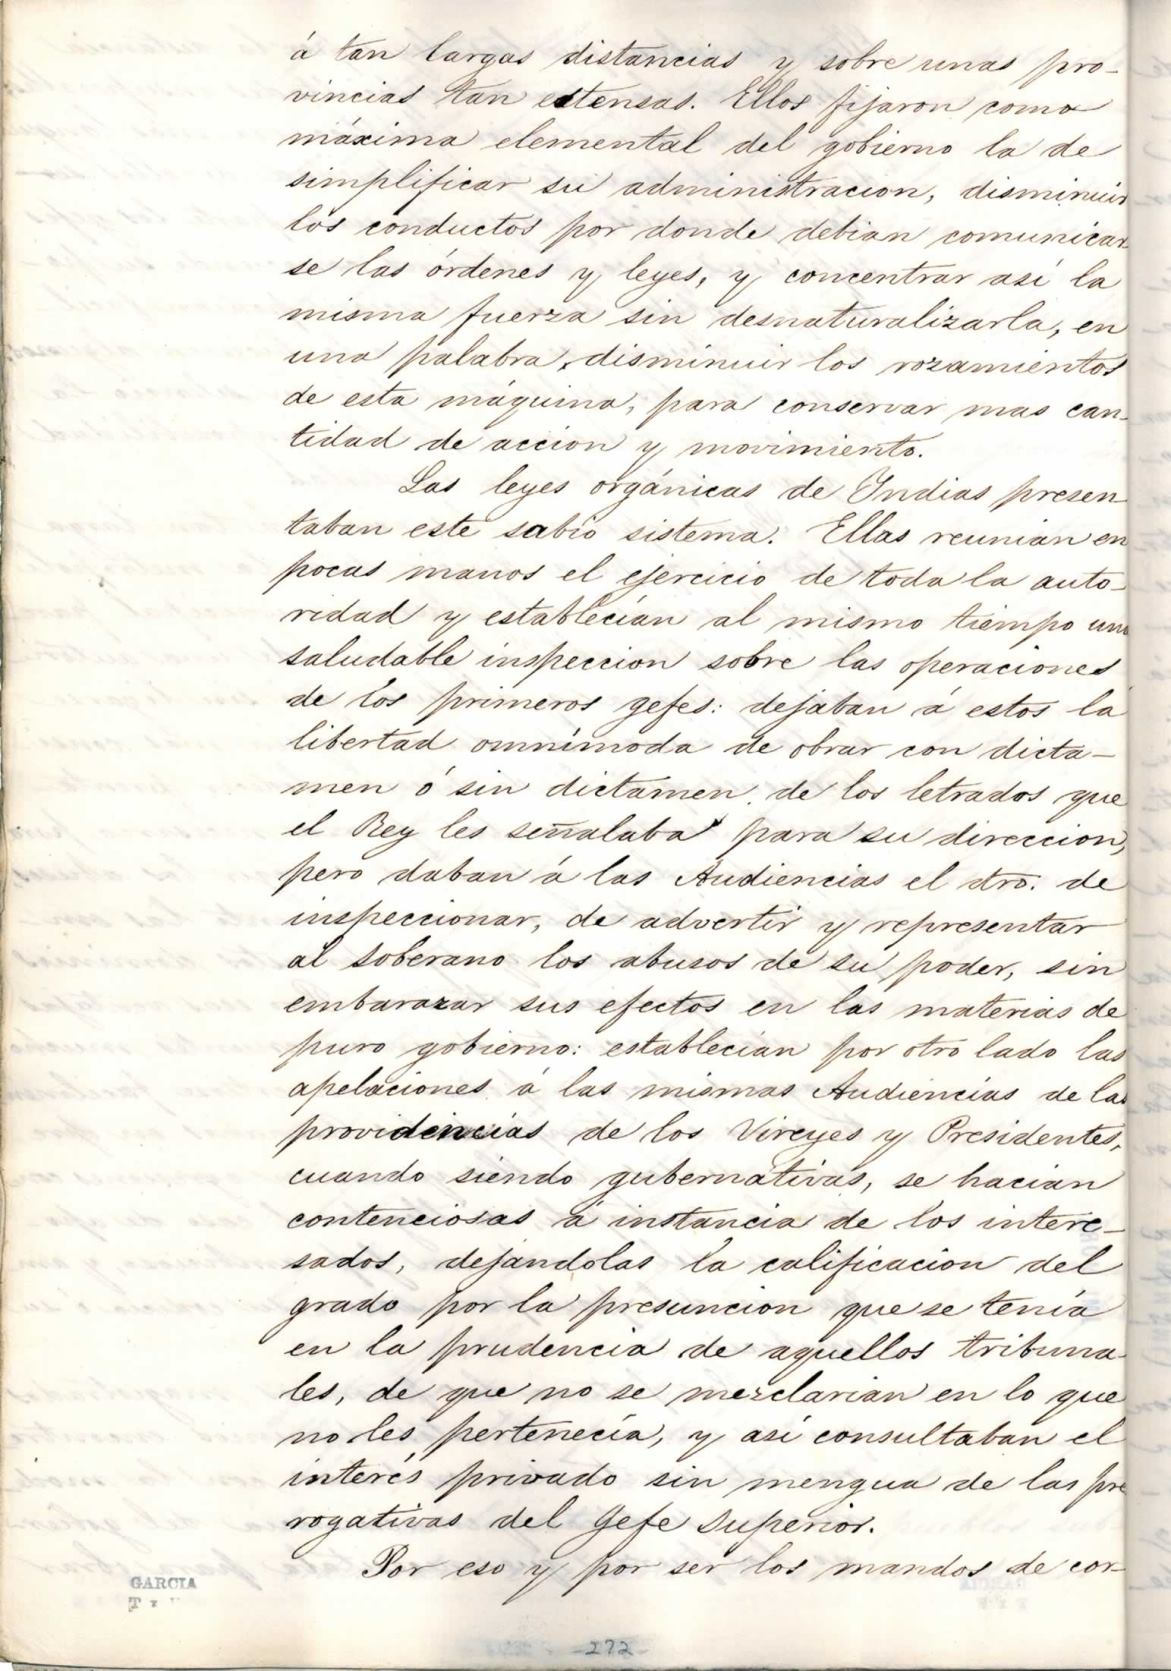 á tan largas distancias y sobre unas pro-
vincias tan estensas. Ellos fijaron como
máxima elemental del gobierno la de
simplificar su administracion, disminuir
los conductos por donde debian comunicar
se las órdenes y leyes, y concentrar asi la
misma fuerza sin desnaturalizarla, en
una palabra, disminuir los rozamientos
de esta máquina, para conservar mas can-
tidad de accion y movimiento.
Las leyes orgánicas de Indias presen-
taban este sabio sistema. Ellas reunian en
pocas manos el ejercicio de toda la auto-
ridad y establecian al mismo tiempo una
saludable inspeccion sobre las operaciones
de los primeros gefes: dejaban á estos la
libertad omnímoda de obrar con dicta-
men ó sin dictamen de los letrados que
el Rey les señalaba para su direccion,
pero daban á las Audiencias el dro. de
inspeccionar, de advertir y representar
al soberano los abusos de su poder, sin
embarazar sus efectos en las materias de
puro gobierno: establecian por otro lado las
apelaciones á las mismas Audiencias de las
providencias de los Vireyes y Presidentes,
cuando siendo gubernativas, se hacian
contenciosas á instancia de los intere-
sados, dejándolas la calificacion del
grado por la presuncion que se tenia
en la prudencia de aquellos tribuna-
les, de que no se mezclarian en lo que
no les pertenecía, y asi consultaban el
interés privado sin mengua de las pre
rogativas del Gefe Superior.
Por eso y por ser los mandos de cor-
GARCIA
-272-